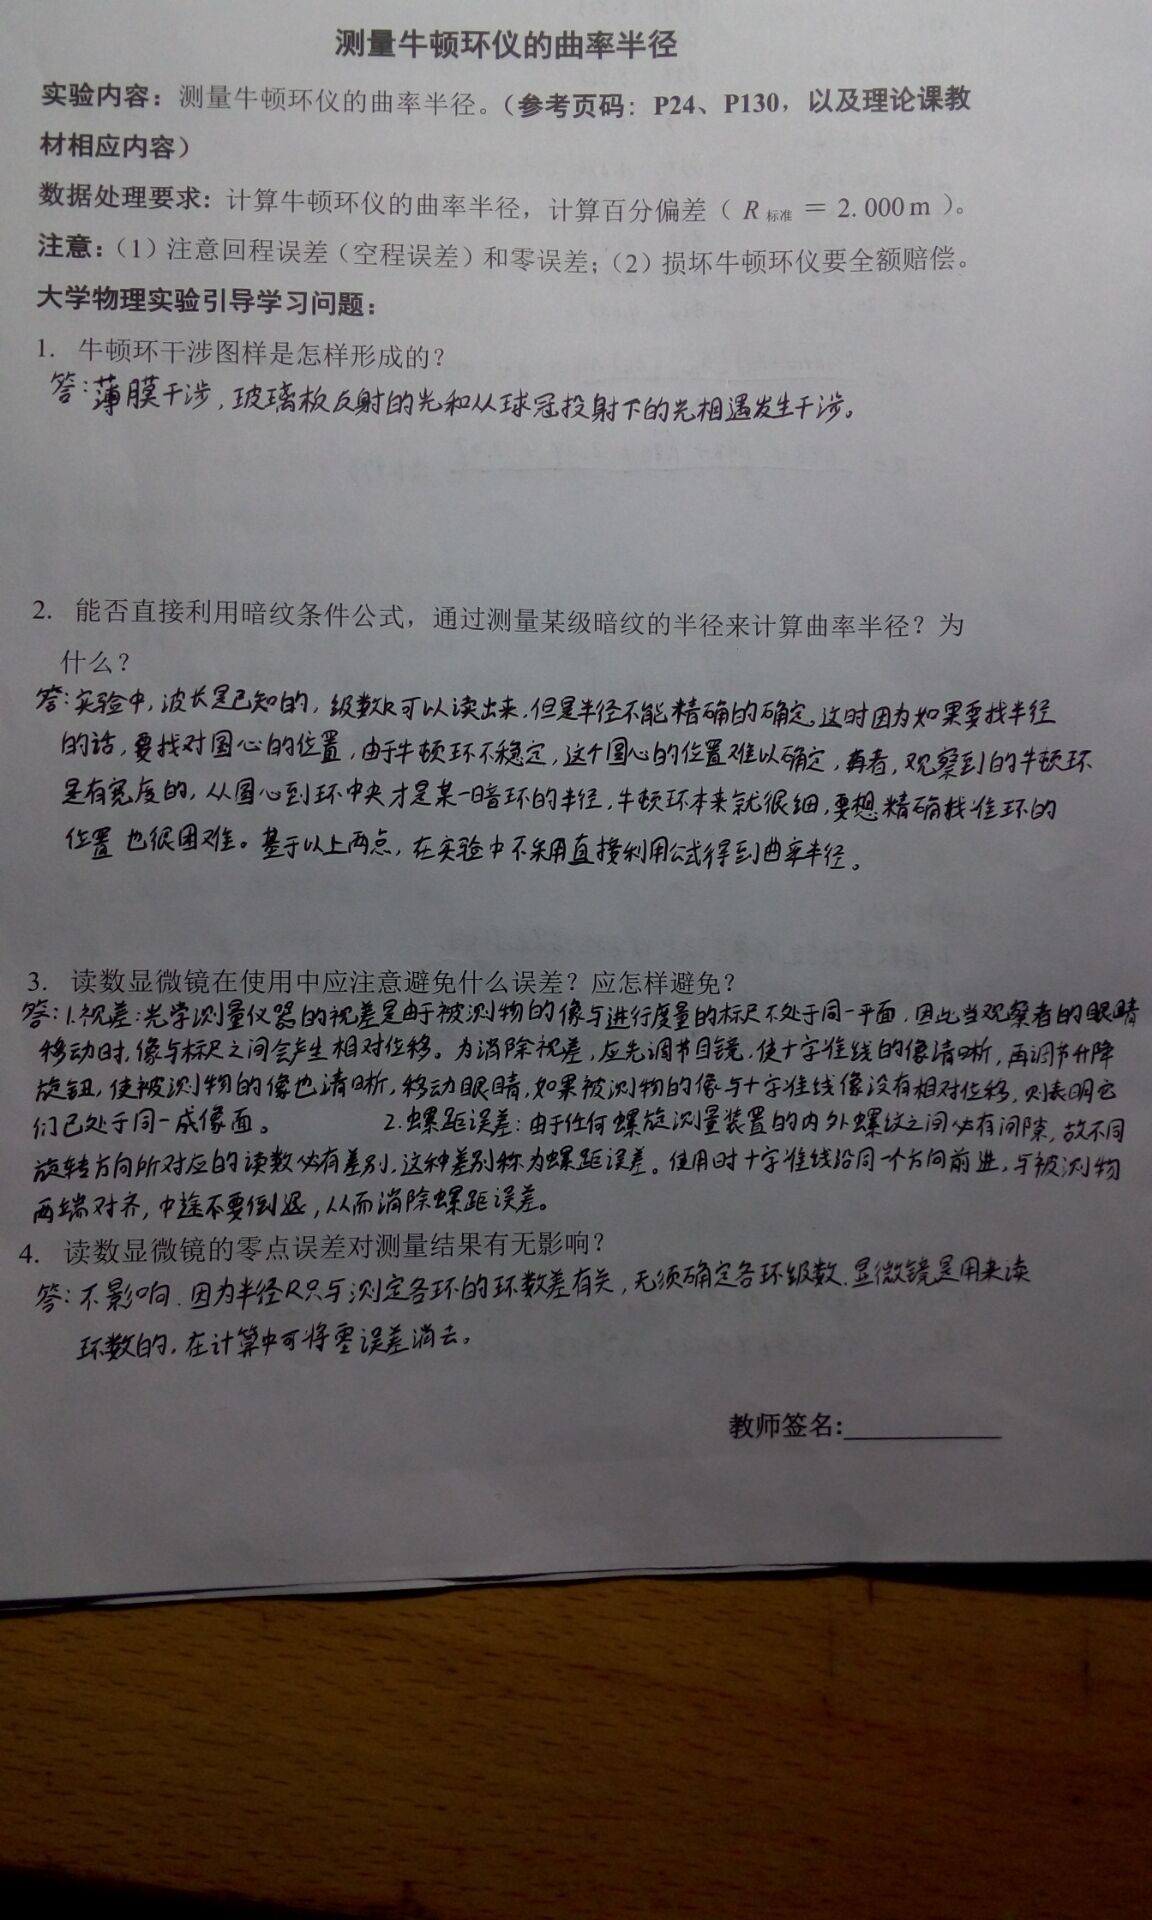 测量牛顿环仪的曲率半径
实验内容：测量牛顿环仪的曲率半径。（参考页码：P24、P130，以及理论课教
材相应内容）
数据处理要求：计算牛顿环仪的曲率半径，计算百分偏差（ R 标准 = 2.000m ）。
注意：（1）注意回程误差（空程误差）和零误差；（2）损坏牛顿环仪要全额赔偿。
大学物理实验引导学习问题：
1. 牛顿环干涉图样是怎样形成的？
答：薄膜干涉，玻璃板反射的光和从球冠投射下的光相遇发生干涉。
2. 能否直接利用暗纹条件公式，通过测量某级暗纹的半径来计算曲率半径？为
什么？
答：实验中，波长是已知的，级数k可以读出来，但是半径不能精确的确定，这时因为如果要找半径
的话，要找对圆心的位置，由于牛顿环不稳定，这个圆心的位置难以确定，再者，观察到的牛顿环
是有宽度的，从圆心到环中央才是某一暗环的半径，牛顿环本来就很细，要想精确找准环的
位置也很困难。基于以上两点，在实验中不采用直接利用公式得到曲率半径。
3. 读数显微镜在使用中应注意避免什么误差？应怎样避免？
答：1.视差：光学测量仪器的视差是由于被测物的像与进行度量的标尺不处于同一平面，因此当观察者的眼睛
移动时，像与标尺之间会产生相对位移。为消除视差，应先调节目镜，使十字准线的像清晰，再调节升降
旋钮，使被测物的像也清晰，移动眼睛，如果被测物的像与十字准线像没有相对位移，则表明它
们已处于同一成像面。 2.螺距误差：由于任何螺旋测量装置的内外螺纹之间必有间隙，故不同
旋转方向所对应的读数必有差别，这种差别称为螺距误差。使用时十字准线沿同一个方向前进，与被测物
两端对齐，中途不要倒退，从而消除螺距误差。
4. 读数显微镜的零点误差对测量结果有无影响？
答：不影响．因为半径R只与测定各环的环数差有关，无须确定各环级数．显微镜是用来读
环数的，在计算中可将零误差消去。
教师签名: